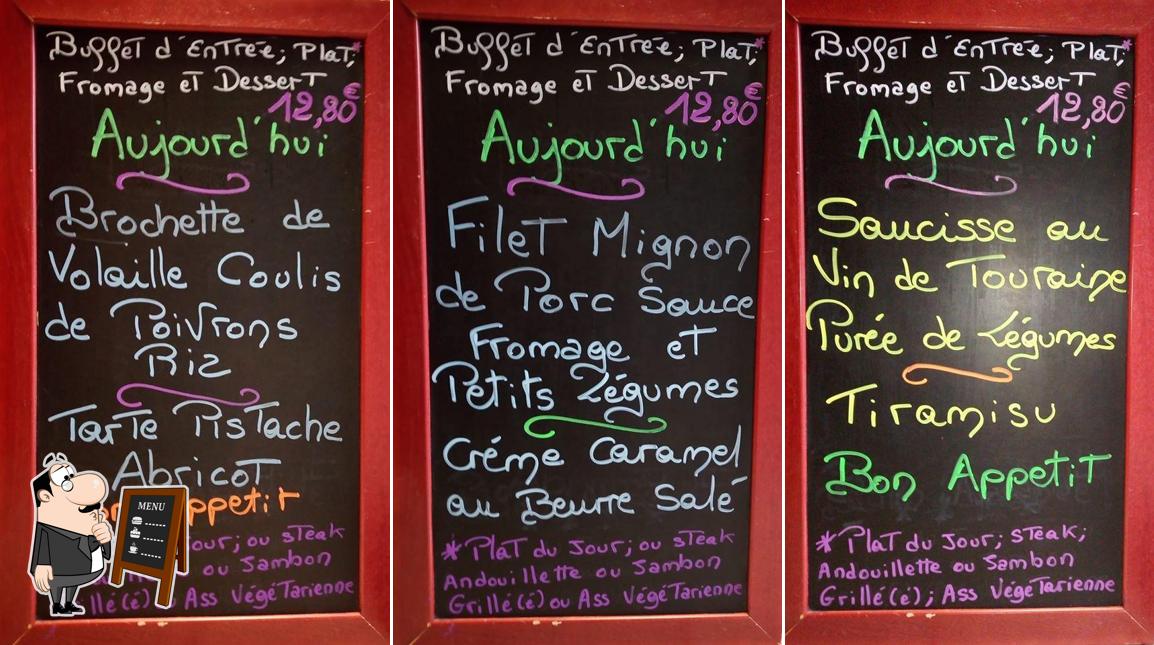 Buffet d'Entrée; Plat*,
Fromage et Dessert
12,80€
Aujourd'hui
Brochette de
Volaille Coulis
de Poivrons
Riz
Tarte Pistache
Abricot
ppetit
MENU
jour; ou steak
ou Jambon
illé(é) Ass Végétarienne
Buffet d'Entrée; Plat*,
Fromage et Dessert
12,80€
Aujourd'hui
Filet Mignon
de Porc Sauce
Fromage et
Petits Légumes
Créme Caramel
au Beurre Salé
*Plat du Jour; ou steak
Andouillette ou Jambon
Grillé(é) ou Ass Végétarienne
Buffet d'Entrée; Plat*,
Fromage et Dessert
12,80€
Aujourd'hui
Saucisse au
Vin de Touraine
Purée de Légumes
Tiramisu
Bon Appetit
*Plat du Jour; steak;
Andouillette ou Jambon
Grillé(é); Ass Végétarienne